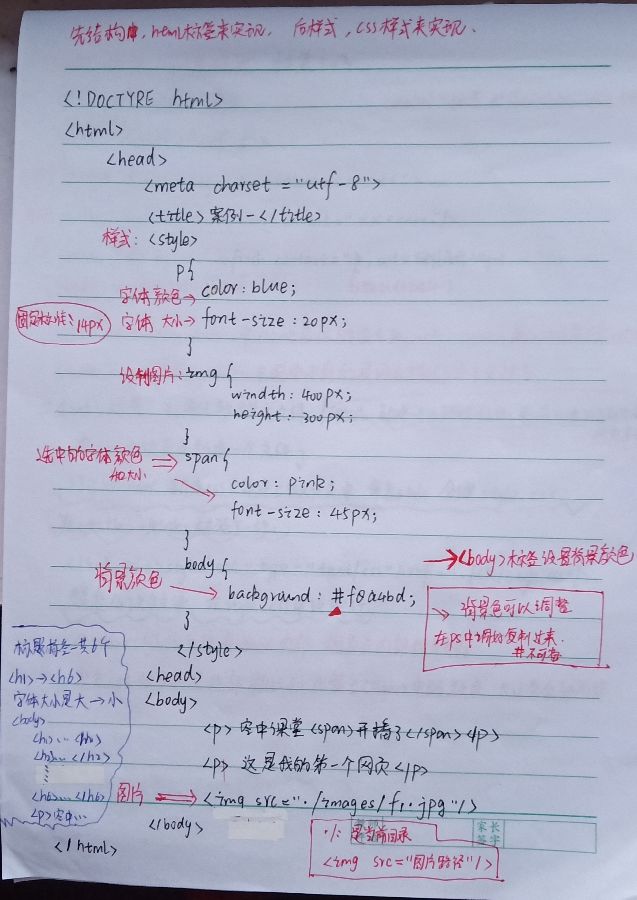 先结构, html标签来实现, 后样式, css样式来实现.
<!DOCTYPE html>
<html>
<head>
<meta charset="utf-8">
<title>案例一</title>
样式: <style>
p{
字体颜色→ color: blue;
固定标准: 14px
字体大小→ font-size: 20px;
}
设制图片: img {
windth: 400px;
height: 300px;
}
选中的字体颜色 ⇒ span{
和大小
color: pink;
font-size: 45px;
}
body{
→<body>标签设置背景颜色
背景颜色 → background: #f8a4bd;
→ 背景色可以调整
在ps中调好复制过来.
#不可省
}
</style>
<head>
<body>
标题标签一共6个
<h1>→<h6>
字体大小是大→小
<body>
<h1>... <h1>
<h2>... </h2>
<h6>... </h6>
<p>空中...
<p>空中课堂<span>开播了</span><p>
<p>这是我的第一个网页</p>
图片 ⇒ <img src="./images/f1.jpg"/>
</body>
</html>
./: 是当前目录
<img src="图片路径"/>
家长
签字